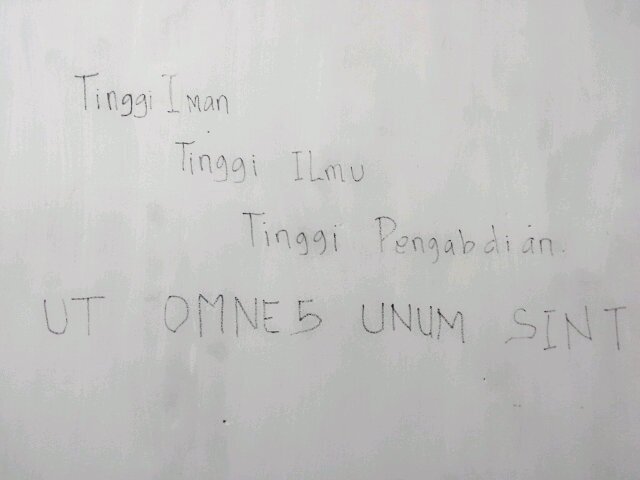 Tinggi Iman
Tinggi ILmu
Tinggi Pengabdian.
UT OMNES UNUM SINT